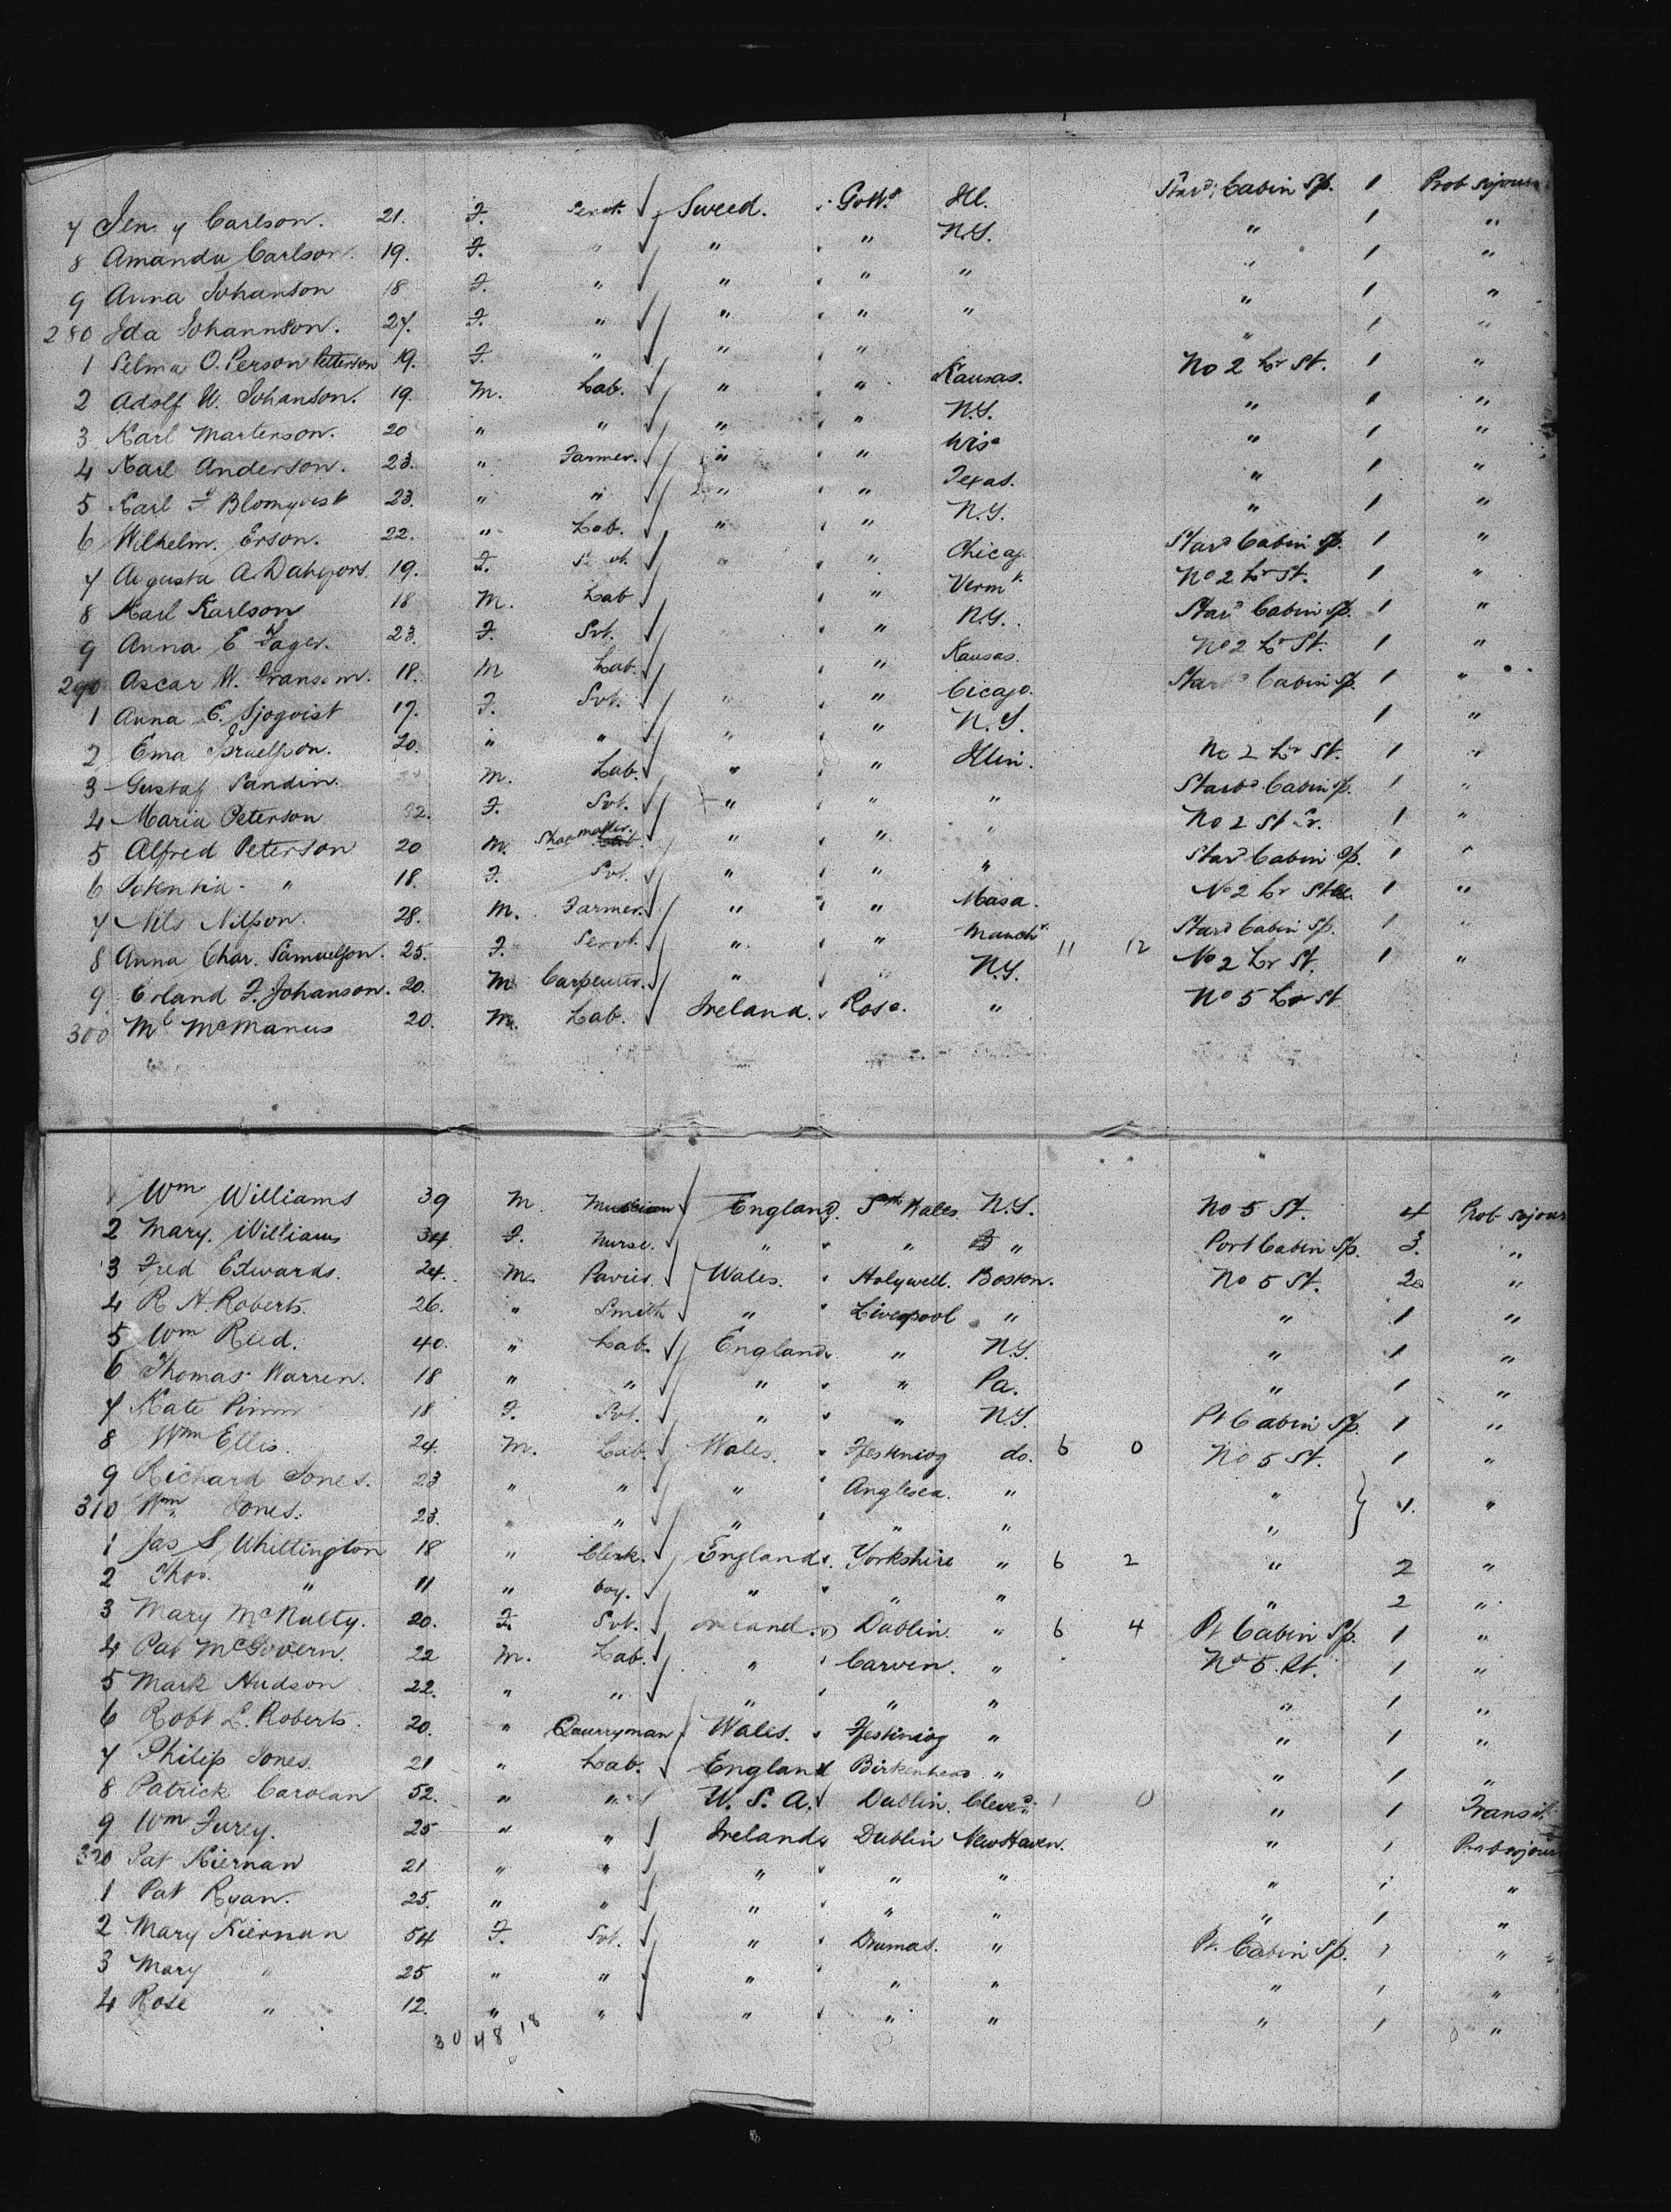 7 Jeny Carlson. 21. F. Servt. Sweed. Gottg Ill. Stard Cabin Sp. 1 Prob sojourn
8 Amanda Carlson. 19. F. " " " N.Y. " 1 "
9 Anna Johanson 18 F. " " " " " 1 "
280 Ida Johannson. 27. F. " " " " " 1 "
1 Selma O. Person Petterson 19. F. " " " " 1 "
2 Adolf W. Johanson. 19. M. Lab. " " Kansas. No 2 Lr St. 1 "
3 Karl Martenson. 20 " " " " N.Y. " 1 "
4 Karl Anderson. 23. " Farmer. " " Wis " 1 "
5 Karl F Blomqvist 23. " " " " Texas. " 1 "
6 Wilhelm. Erson. 22. " Lab. " " N.Y. " 1 "
7 Augusta A. 19. F. " " Chicag Stard Cabin Sp. 1 "
8 Karl Karlson 18 M. Lab " Vermt. No 2 Lr St. 1 "
9 Anna E Fager. 23. F. Svt. " N.Y. Stard Cabin Sp. 1 "
290 Oscar W. 18. M Lab " Kansas. No 2 Lr St. 1 "
1 Anna E. Sjoqvist 17. F. Svt. " " Cicago. Stard Cabin Sp. 1 "
2 Ema Israelson. 20. " " " " N.Y. 1 "
3 Gustaf Sandin. M. Lab. " " Illin. No 2 Lr St. 1 "
4 Maria Peterson 32. F. Svt. " " " Starbd Cabin Sp. 1 "
5 Alfred Peterson 20 M. Shoemaker. " " " No 2 St Lr. 1 "
6 " 18. F. Svt. " " " Stard Cabin Sp. 1 "
7 Nils Nilson. 28. M. Farmer. " " Masa. No 2 Lr St 1 "
8 Anna Char. Samuelson. 25. F. Servt. " " Manchr. 11 12 Stard Cabin Sp. 1 "
9 Erland F. Johanson. 20. M. Carpenter. " " N.Y. No 2 Lr St. 1 "
300 Ml McManus 20. M. Lab. Ireland. Rosc. " No 5 Lr St
1 Wm Williams 39 M. Musician England. Sth Wales N.Y. No 5 St. 4 Prob sojour
2 Mary. Williams 34 F. Nurse. " " " Port Cabin Sp. 3. "
3 Fred Edwards. 24. M. Wales. Holywell. Boston. No 5 St. 2 "
4 R. H. Roberts. 26. " Smith " Liverpool " " 1 "
5 Wm Reed. 40. " Lab. England. " N.Y. " 1 "
6 Thomas Warren. 18 " " " " Pa. " 1 "
7 Kate 18 F. Svt. " " N.Y. Pt Cabin Sp. 1 "
8 Wm Ellis. 24. M. Lab. Wales. Ffestiniog do. 6 0 No 5 St. 1 "
9 Richard Jones. 23 " " " Anglesea. " "
310 Wm. Jones. 23. " " " " " " "
1 Jas S. Whittington 18 " Clerk. England. Yorkshire " 6 2 " 2 "
2 Thos. " 11 " boy. " " " " 2 "
3 Mary McNulty. 20. F. Svt. Ireland. Dublin. " 6 4 Pt Cabin Sp. 1 "
4 Pat McGovern. 22 M. Lab. " Carven. " No 5. St. 1 "
5 Mark Hudson 22. " " " " " " 1 "
6 Robt L. Roberts. 20. " Quurryman Wales. Ffestiniog " " 1 "
7 Philip Jones. 21 " Lab. England Birkenhead " " 1 "
8 Patrick Carolan 52. " " U.S.A. Dublin. Cleved. 1 0 " 1 Transit.
9 Wm Furey. 25 " " Ireland Dublin New Haven. " 1 Prob sojour
320 Pat Kiernan 21 " " " " " " 1 "
1 Pat Ryan. 25. " " " " " " 1 "
2 Mary Kiernan 54 F. Svt. " Drumas. " Pt. Cabin Sp. 1 "
3 Mary " 25 " " " " " " 1 "
4 Rose " 12. " " " " " " 1 "
30 48 18